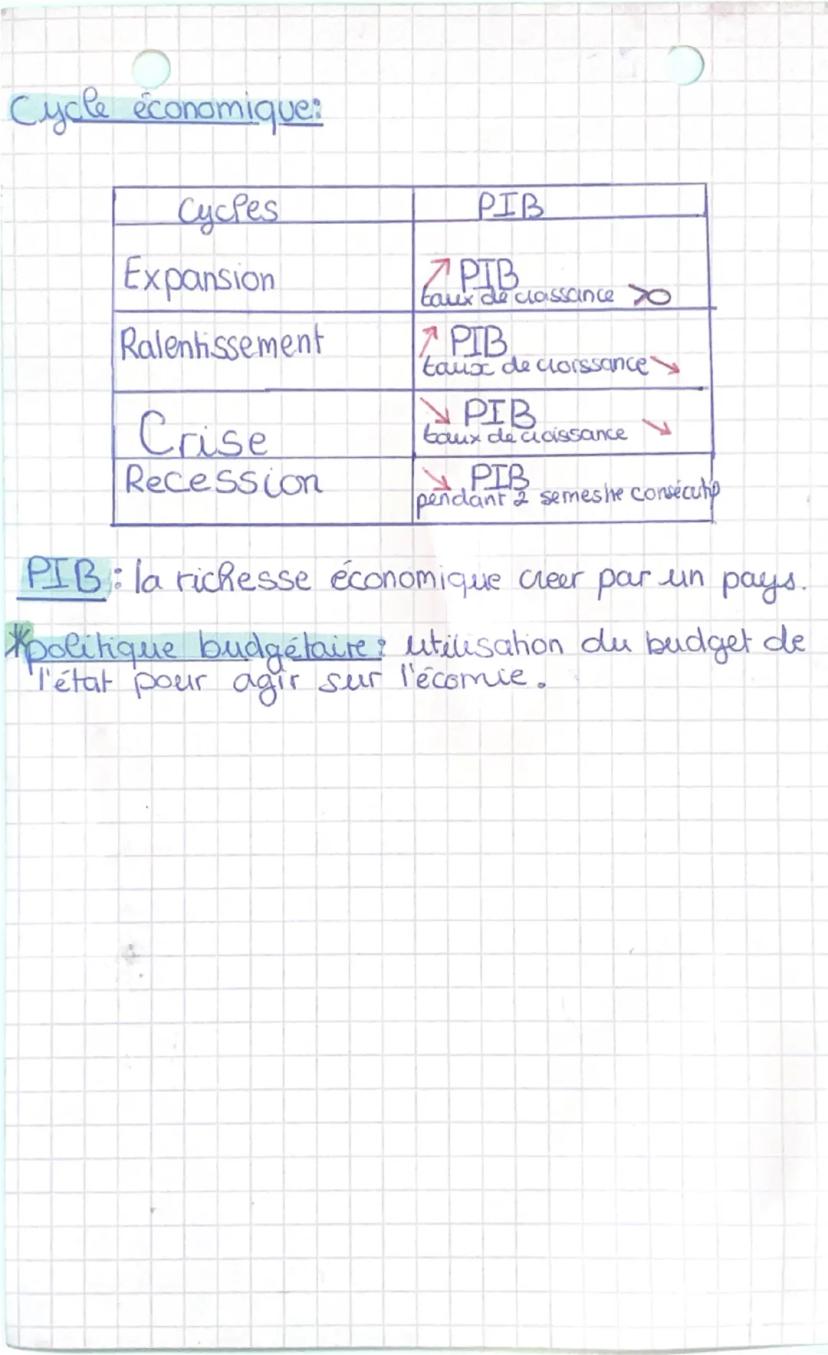 Cycle économique:
Cycles PIB
Expansion ↗ PIB
taux de croissance >0
Ralentissement ↗ PIB
taux de croissance ↘
Crise ↘ PIB
taux de croissance ↘
Recession ↘ PIB
pendant 2 semestre consécutif
PIB : la richesse économique creer par un pays.
*politique budgétaire : utilisation du budget de
l'état pour agir sur l'écomie.